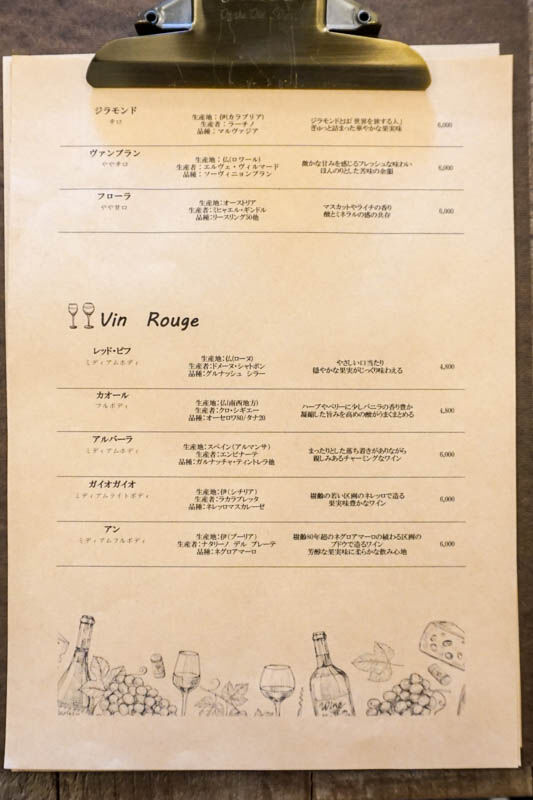 ジラモンド
辛口
生産地：(伊)カラブリア)
生産者：ラーチノ
品種：マルヴァジア
ジラモンドとは「世界を旅する人」
ぎゅっと詰まった華やかな果実味
6,000
ヴァンブラン
やや辛口
生産地：(仏(ロワール)
生産者：エルヴェ・ヴィルマード
品種：ソーヴィニョンブラン
微かな甘みを感じるフレッシュな味わい
ほんのりとした苦味の余韻
6,000
フローラ
やや甘口
生産地：オーストリア
生産者：ミヒャエル・ギンドル
品種：リースリング50他
マスカットやライチの香り
酸とミネラルの感の共存
6,000
Vin Rouge
レッド・ビフ
ミディアムボディ
生産地：仏(ローヌ)
生産者：ドメーヌ・シャトボン
品種：グルナッシュ シラー
やさしい口当たり
穏やかな果実がじっくり味わえる
4,800
カオール
フルボディ
生産地：仏(南西地方)
生産者：クロ・シギエー
品種：オーセロワ80/タナ20
ハーブやベリーに少しバニラの香り豊か
凝縮した旨みを高めの酸がうまくまとめる
4,800
アルバーラ
ミディアムボディ
生産地：スペイン(アルマンサ)
生産者：エンビナーテ
品種：ガルナッチャ・ティントレラ他
まったりとした落ち着きがありながら
親しみあるチャーミングなワイン
6,000
ガイオガイオ
ミディアムライトボディ
生産地：伊(シチリア)
生産者：ラカラブレッタ
品種：ネレッロマスカレーゼ
樹齢の若い区画のネレッロで造る
果実味豊かなワイン
6,000
アン
ミディアムフルボディ
生産地：伊(プーリア)
生産者：ナタリーノ デル プレーテ
品種：ネグロアマーロ
樹齢80年超のネグロアマーロの植わる区画の
ブドウで造るワイン
芳醇な果実味に柔らかな飲み心地
6,000
Wine